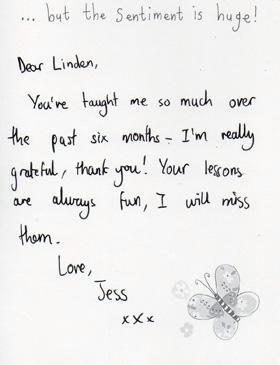 ... but the sentiment is huge!
Dear Linden,
You've taught me so much over
the past six months - I'm really
grateful, thank you! Your lessons
are always fun, I will miss
them.
Love,
Jess
xxx